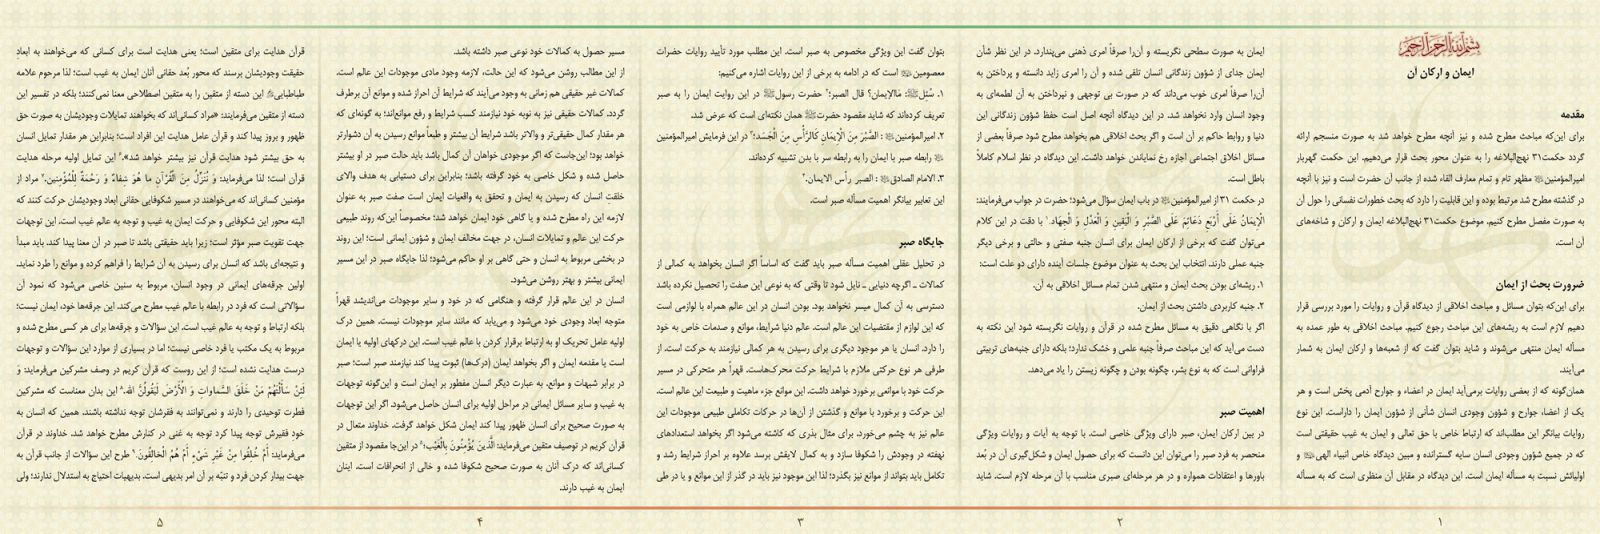 بسم الله الرحمن الرحیم
ایمان و ارکان آن
مقدمه
برای این‌که مباحث مطرح شده و نیز آنچه مطرح خواهد شد به صورت منسجم ارائه
گردد حکمت۳۱ نهج‌البلاغه را به عنوان محور بحث قرار می‌دهیم. این حکمت گهربار
امیرالمؤمنین مظهر تام و تمام معارف القاء شده از جانب آن حضرت است و نیز با آنچه
در گذشته مطرح شد مرتبط بوده و این قابلیت را دارد که بحث خطورات نفسانی را حول آن
به صورت مفصل مطرح کنیم. موضوع حکمت۳۱ نهج‌البلاغه ایمان و ارکان و شاخه‌های
آن است.
ضرورت بحث از ایمان
برای این‌که بتوان مسائل و مباحث اخلاقی از دیدگاه قرآن و روایات را مورد بررسی قرار
دهیم لازم است به ریشه‌های این مباحث رجوع کنیم. مباحث اخلاقی به طور عمده به
مسأله ایمان منتهی می‌شوند و شاید بتوان گفت که از شعبه‌ها و ارکان ایمان به شمار
می‌آیند.
همان‌گونه که از بعضی روایات برمی‌آید ایمان در اعضاء و جوارح آدمی پخش است و هر
یک از اعضا، جوارح و شؤون وجودی انسان شأنی از شؤون ایمان را داراست. این نوع
روایات بیانگر این مطلب‌اند که ارتباط خاص با حق تعالی و ایمان به غیب حقیقتی است
که در جمیع شؤون وجودی انسان سایه گسترانده و مبین دیدگاه خاص انبیاء الهی و
اولیائش نسبت به مسأله ایمان است. این دیدگاه در مقابل آن منظری است که به مسأله
۱
ایمان به صورت سطحی نگریسته و آن‌را صرفاً امری ذهنی می‌پندارد. در این نظر شأن
ایمان جدای از شؤون زندگانی انسان تلقی شده و آن را امری زاید دانسته و پرداختن به
آن‌را صرفاً امری خوب می‌داند که در صورت بی توجهی و نپرداختن به آن لطمه‌ای به
وجود انسان وارد نخواهد شد. در این دیدگاه آنچه اصل است حفظ شؤون زندگانی این
دنیا و روابط حاکم بر آن است و اگر بحث اخلاقی هم بخواهد مطرح شود صرفاً بعضی از
مسائل اخلاق اجتماعی اجازه رخ نمایاندن خواهد داشت. این دیدگاه در نظر اسلام کاملاً
باطل است.
در حکمت ۳۱ از امیرالمؤمنین در باب ایمان سؤال می‌شود؛ حضرت در جواب می‌فرمایند:
الْإِیمَانُ عَلَى أَرْبَعِ دَعَائِمَ عَلَى الصَّبْرِ وَ الْیَقِینِ وَ الْعَدْلِ وَ الْجِهَادِ.۱ با دقت در این کلام
می‌توان گفت که برخی از ارکان ایمان برای انسان جنبه صفتی و حالتی و برخی دیگر
جنبه عملی دارند. انتخاب این بحث به عنوان موضوع جلسات آینده دارای دو علت است:
۱. ریشه‌ای بودن بحث ایمان و منتهی شدن تمام مسائل اخلاقی به آن.
۲. جنبه کاربردی داشتن بحث از ایمان.
اگر با نگاهی دقیق به مسائل مطرح شده در قرآن و روایات نگریسته شود این نکته به
دست می‌آید که این مباحث صرفاً جنبه علمی و خشک ندارد؛ بلکه دارای جنبه‌های تربیتی
فراوانی است که به نوع بشر، چگونه بودن و چگونه زیستن را یاد می‌دهد.
اهمیت صبر
در بین ارکان ایمان، صبر دارای ویژگی خاصی است. با توجه به آیات و روایات ویژگی
منحصر به فرد صبر را می‌توان این دانست که برای حصول ایمان و شکل‌گیری آن در بُعد
باورها و اعتقادات همواره و در هر مرحله‌ای صبری مناسب با آن مرحله لازم است. شاید
۲
بتوان گفت این ویژگی مخصوص به صبر است. این مطلب مورد تأیید روایات حضرات
معصومین است که در ادامه به برخی از این روایات اشاره می‌کنیم:
۱. سُئِلَ: مَاالإیمان؟ قال الصبر؛۲ حضرت رسول در این روایت ایمان را به صبر
تعریف کرده‌اند که شاید مقصود حضرت همان نکته‌ای است که عرض شد.
۲. امیرالمؤمنین: الصَّبْرُ مِنَ الْإِیمَانِ کَالرَّأْسِ مِنَ الْجَسَد؛۳ در این فرمایش امیرالمؤمنین
رابطه صبر با ایمان را به رابطه سر با بدن تشبیه کرده‌اند.
۳. الامام الصادق: الصبر رأس الایمان.۴
این تعابیر بیانگر اهمیت مسأله صبر است.
جایگاه صبر
در تحلیل عقلی اهمیت مسأله صبر باید گفت که اساساً اگر انسان بخواهد به کمالی از
کمالات ـ اگرچه دنیایی ـ نایل شود تا وقتی که به نوعی این صفت را تحصیل نکرده باشد
دسترسی به آن کمال میسر نخواهد بود. بودن انسان در این عالم همراه با لوازمی است
که این لوازم از مقتضیات این عالم است. عالم دنیا شرایط، موانع و صدمات خاص به خود
را دارد. انسان یا هر موجود دیگری برای رسیدن به هر کمالی نیازمند به حرکت است. از
طرفی هر نوع حرکتی ملازم با شرایط حرکت محرک‌هاست. قهراً هر متحرکی در مسیر
حرکت خود با موانعی برخورد خواهد داشت. این موانع جزء ماهیت و طبیعت این عالم است.
این حرکت و برخورد با موانع و گذشتن از آن‌ها در حرکات تکاملی طبیعی موجودات این
عالم نیز به چشم می‌خورد. برای مثال بذری که کاشته می‌شود اگر بخواهد استعدادهای
نهفته در وجودش را شکوفا سازد و به کمال لایقش برسد علاوه بر احراز شرایط رشد و
تکامل باید بتواند از موانع نیز بگذرد؛ لذا این موجود نیز باید در گذر از این موانع و یا در طی
۳
مسیر حصول به کمالات خود نوعی صبر داشته باشد.
از این مطالب روشن می‌شود که این حالت، لازمه وجود مادی موجودات این عالم است.
کمالات غیر حقیقی هم زمانی به وجود می‌آیند که شرایط آن احراز شده و موانع آن برطرف
گردد. کمالات حقیقی نیز به نوبه خود نیازمند کسب شرایط و رفع موانع‌اند؛ به گونه‌ای که
هر مقدار کمال حقیقی‌تر و والاتر باشد شرایط آن بیشتر و طبعاً موانع رسیدن به آن دشوارتر
خواهد بود؛ این‌جاست که اگر موجودی خواهان آن کمال باشد باید حالت صبر در او بیشتر
حاصل شده و شکل خاصی به خود گرفته باشد؛ بنابراین برای دستیابی به هدف والای
خلقت انسان که رسیدن به ایمان و تحقق به واقعیات ایمان است صفت صبر به عنوان
لازمه این راه مطرح شده و یا گاهی خود ایمان خواهد شد؛ مخصوصاً این‌که روند طبیعی
حرکت این عالم و تمایلات انسان، در جهت مخالف ایمان و شؤون ایمانی است؛ این روند
در بخشی مربوط به انسان و حتی گاهی بر او حاکم می‌شود؛ لذا جایگاه صبر در این مسیر
ایمانی بیشتر و بهتر روشن می‌شود.
انسان در این عالم قرار گرفته و هنگامی که در خود و سایر موجودات می‌اندیشد قهراً
متوجه ابعاد وجودی خود می‌شود و می‌یابد که مانند سایر موجودات نیست. همین درک
اولیه عامل تحریک او به ارتباط برقرار کردن با عالم غیب است. این درکهای اولیه یا ایمان
است یا مقدمه ایمان و اگر بخواهد ایمان (درک‌ها) ثبوت پیدا کند نیازمند صبر است؛ صبر
در برابر شبهات و موانع، به عبارت دیگر انسان مفطور بر ایمان است و این‌گونه توجهات
به غیب و سایر مسائل ایمانی در مراحل اولیه برای انسان حاصل می‌شود. اگر این توجهات
به صورت صحیح برای انسان ظهور پیدا کند ایمان شکل خواهد گرفت. خداوند متعال در
قرآن کریم در توصیف متقین می‌فرماید: الَّذینَ یُؤْمِنُونَ بِالْغَیْبِ؛۵ در این‌جا مقصود از متقین
کسانی‌اند که درک آنان به صورت صحیح شکوفا شده و خالی از انحرافات است. اینان
ایمان به غیب دارند.
۴
قرآن هدایت برای متقین است؛ یعنی هدایت است برای کسانی که می‌خواهند به ابعادِ
حقیقت وجودیشان برسند که محور بُعد حقانی آنان ایمان به غیب است؛ لذا مرحوم علامه
طباطبایی این دسته از متقین را به متقین اصطلاحی معنا نمی‌کنند؛ بلکه در تفسیر این
دسته از متقین می‌فرمایند: «مراد کسانی‌اند که بخواهند تمایلات وجودیشان به صورت حق
ظهور و بروز پیدا کند و قرآن عامل هدایت این افراد است؛ بنابراین هر مقدار تمایل انسان
به حق بیشتر شود هدایت قرآن نیز بیشتر خواهد شد».۶ این تمایل اولیه مرحله هدایت
قرآن است؛ لذا می‌فرماید: وَ نُنَزِّلُ مِنَ الْقُرْآنِ ما هُوَ شِفاءٌ وَ رَحْمَةٌ لِلْمُؤْمِنین.۷ مراد از
مؤمنین کسانی‌اند که می‌خواهند در مسیر شکوفایی حقانی ابعاد وجودیشان حرکت کنند که
البته محور این شکوفایی و حرکت ایمان به غیب و توجه به عالم غیب است. این توجهات
جهت تقویت صبر مؤثر است؛ زیرا باید حقیقتی باشد تا صبر در آن معنا پیدا کند. باید مبدأ
و نتیجه‌ای باشد که انسان برای رسیدن به آن شرایط را فراهم کرده و موانع را طرد نماید.
اولین جرقه‌های ایمانی در وجود انسان، مربوط به سنین خاصی می‌شود که نمود آن
سؤالاتی است که فرد در رابطه با عالم غیب مطرح می‌کند. این جرقه‌ها خود، ایمان نیست؛
بلکه ارتباط و توجه به عالم غیب است. این سؤالات و جرقه‌ها برای هر کسی مطرح شده و
مربوط به یک مکتب یا فرد خاصی نیست؛ اما در بسیاری از موارد این سؤالات و توجهات
درست هدایت نشده است؛ از این روست که قرآن کریم در وصف مشرکین می‌فرماید: وَ
لَئِنْ سَأَلْتَهُمْ مَنْ خَلَقَ السَّماواتِ وَ الْأَرْضَ لَیَقُولُنَّ الله.۸ این بدان معناست که مشرکین
فطرت توحیدی را دارند و نمی‌توانند به فقرشان توجه نداشته باشند. همین که انسان به
خود فقیرش توجه پیدا کرد توجه به غنی در کنارش مطرح خواهد شد. خداوند در قرآن
می‌فرماید: أَمْ خُلِقُوا مِنْ غَیْرِ شَیْءٍ أَمْ هُمُ الْخالِقُونَ.۹ طرح این سؤالات از جانب قرآن به
جهت بیدار کردن فرد و تنبّه بر آن امر بدیهی است. بدیهیات احتیاج به استدلال ندارند؛ ولی
۵